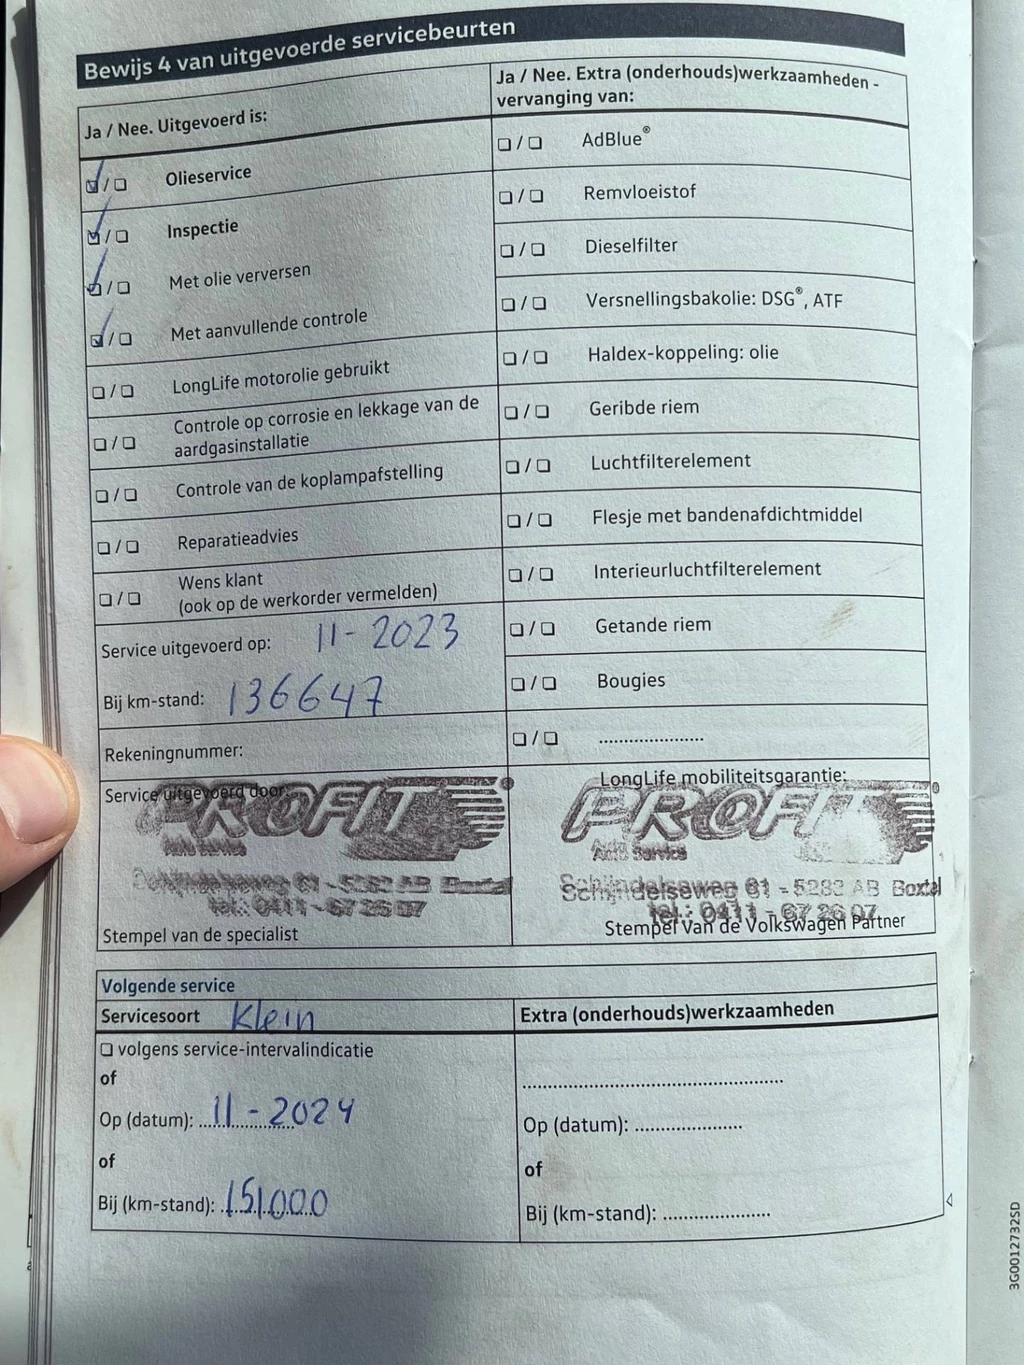 Bewijs 4 van uitgevoerde servicebeurten
Ja / Nee. Uitgevoerd is:
❏ / ❏ Olieservice
❏ / ❏ Inspectie
❏ / ❏ Met olie verversen
❏ / ❏ Met aanvullende controle
❏ / ❏ LongLife motorolie gebruikt
❏ / ❏ Controle op corrosie en lekkage van de
aardgasinstallatie
❏ / ❏ Controle van de koplampafstelling
❏ / ❏ Reparatieadvies
❏ / ❏ Wens klant
(ook op de werkorder vermelden)
Service uitgevoerd op: 11-2023
Bij km-stand: 136647
Rekeningnummer:
Service uitgevoerd door:
PROFIT®
Auto Service
Schijndelseweg 61 - 5283 AB Boxtel
tel.: 0411 - 67 26 07
Stempel van de specialist
Ja / Nee. Extra (onderhouds)werkzaamheden -
vervanging van:
❏ / ❏ AdBlue®
❏ / ❏ Remvloeistof
❏ / ❏ Dieselfilter
❏ / ❏ Versnellingsbakolie: DSG®, ATF
❏ / ❏ Haldex-koppeling: olie
❏ / ❏ Geribde riem
❏ / ❏ Luchtfilterelement
❏ / ❏ Flesje met bandenafdichtmiddel
❏ / ❏ Interieurluchtfilterelement
❏ / ❏ Getande riem
❏ / ❏ Bougies
❏ / ❏ .....................
LongLife mobiliteitsgarantie:
PROFIT®
Auto Service
Schijndelseweg 61 - 5283 AB Boxtel
tel.: 0411 - 67 26 07
Stempel van de Volkswagen Partner
Volgende service
Servicesoort Klein
❏ volgens service-intervalindicatie
of
Op (datum): 11-2024
of
Bij (km-stand): 151000
Extra (onderhouds)werkzaamheden
.....................................................
Op (datum): ......................
of
Bij (km-stand): ......................
3G0012732SD